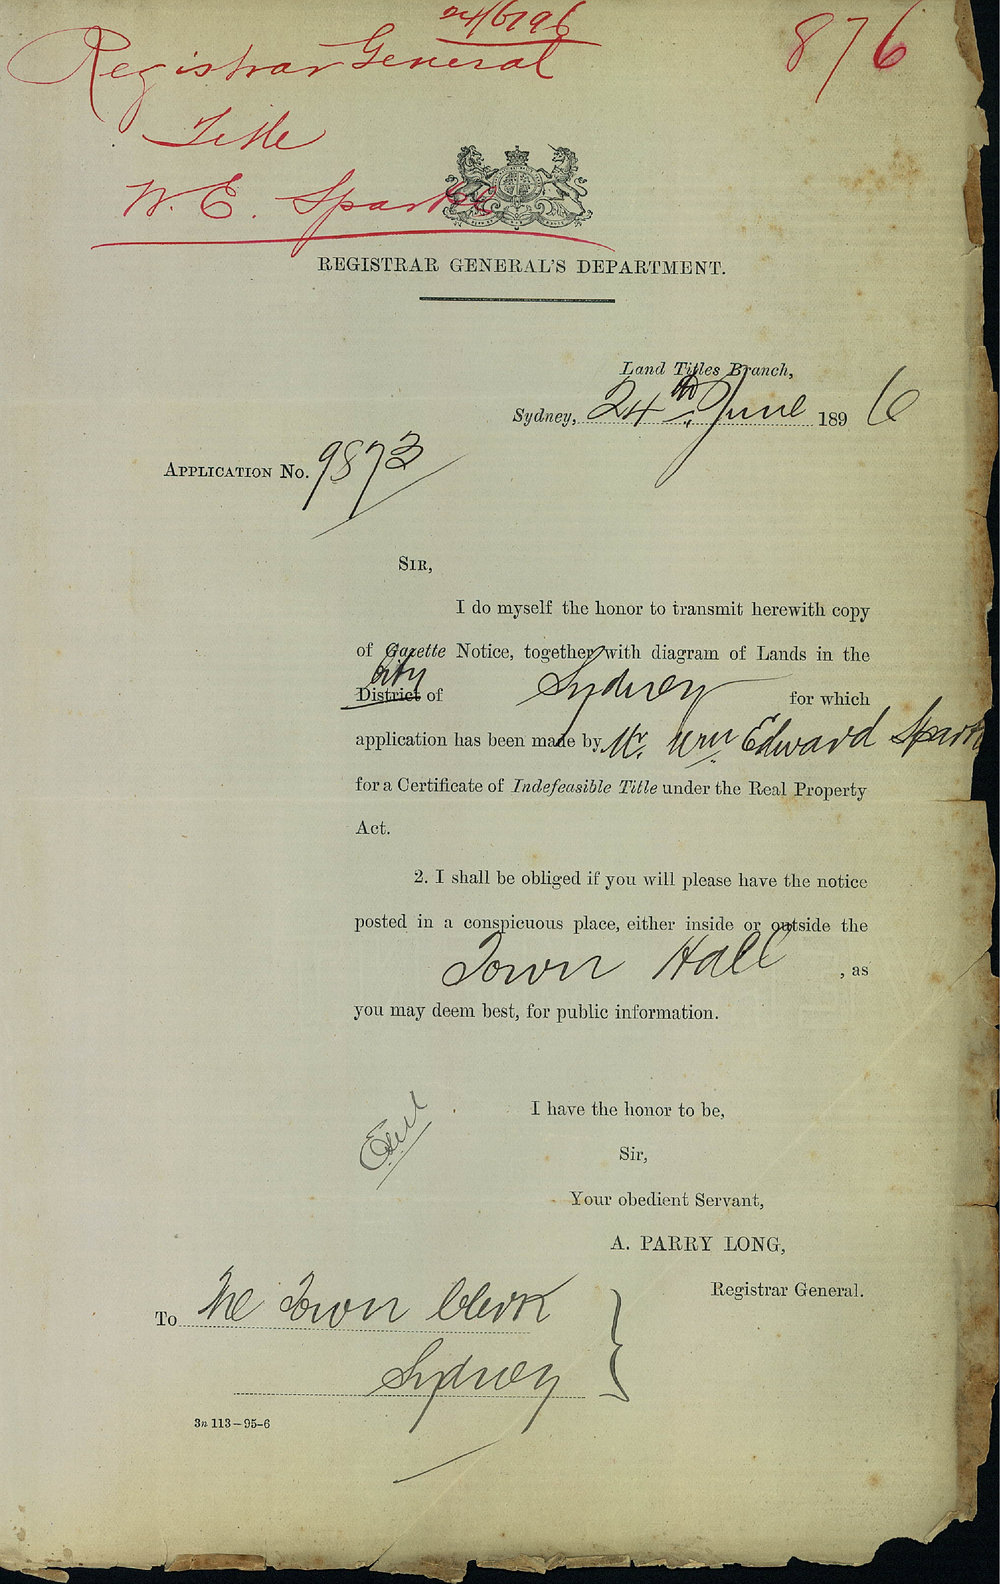 24/6/96
876
Registrar General
Title
W. E. Sparke
REGISTRAR GENERAL'S DEPARTMENT.
Land Titles Branch,
Sydney, 24th June 1896
APPLICATION No. 9873
SIR,
I do myself the honor to transmit herewith copy
of Gazette Notice, together with diagram of Lands in the
City
District of Sydney for which
application has been made by Mr. Wm Edward Spark
for a Certificate of Indefeasible Title under the Real Property
Act.
2. I shall be obliged if you will please have the notice
posted in a conspicuous place, either inside or outside the
Town Hall, as
you may deem best, for public information.
I have the honor to be,
Sir,
Your obedient Servant,
A. PARRY LONG,
Registrar General.
Encl
To The Town Clerk
Sydney
3n 113-95-6